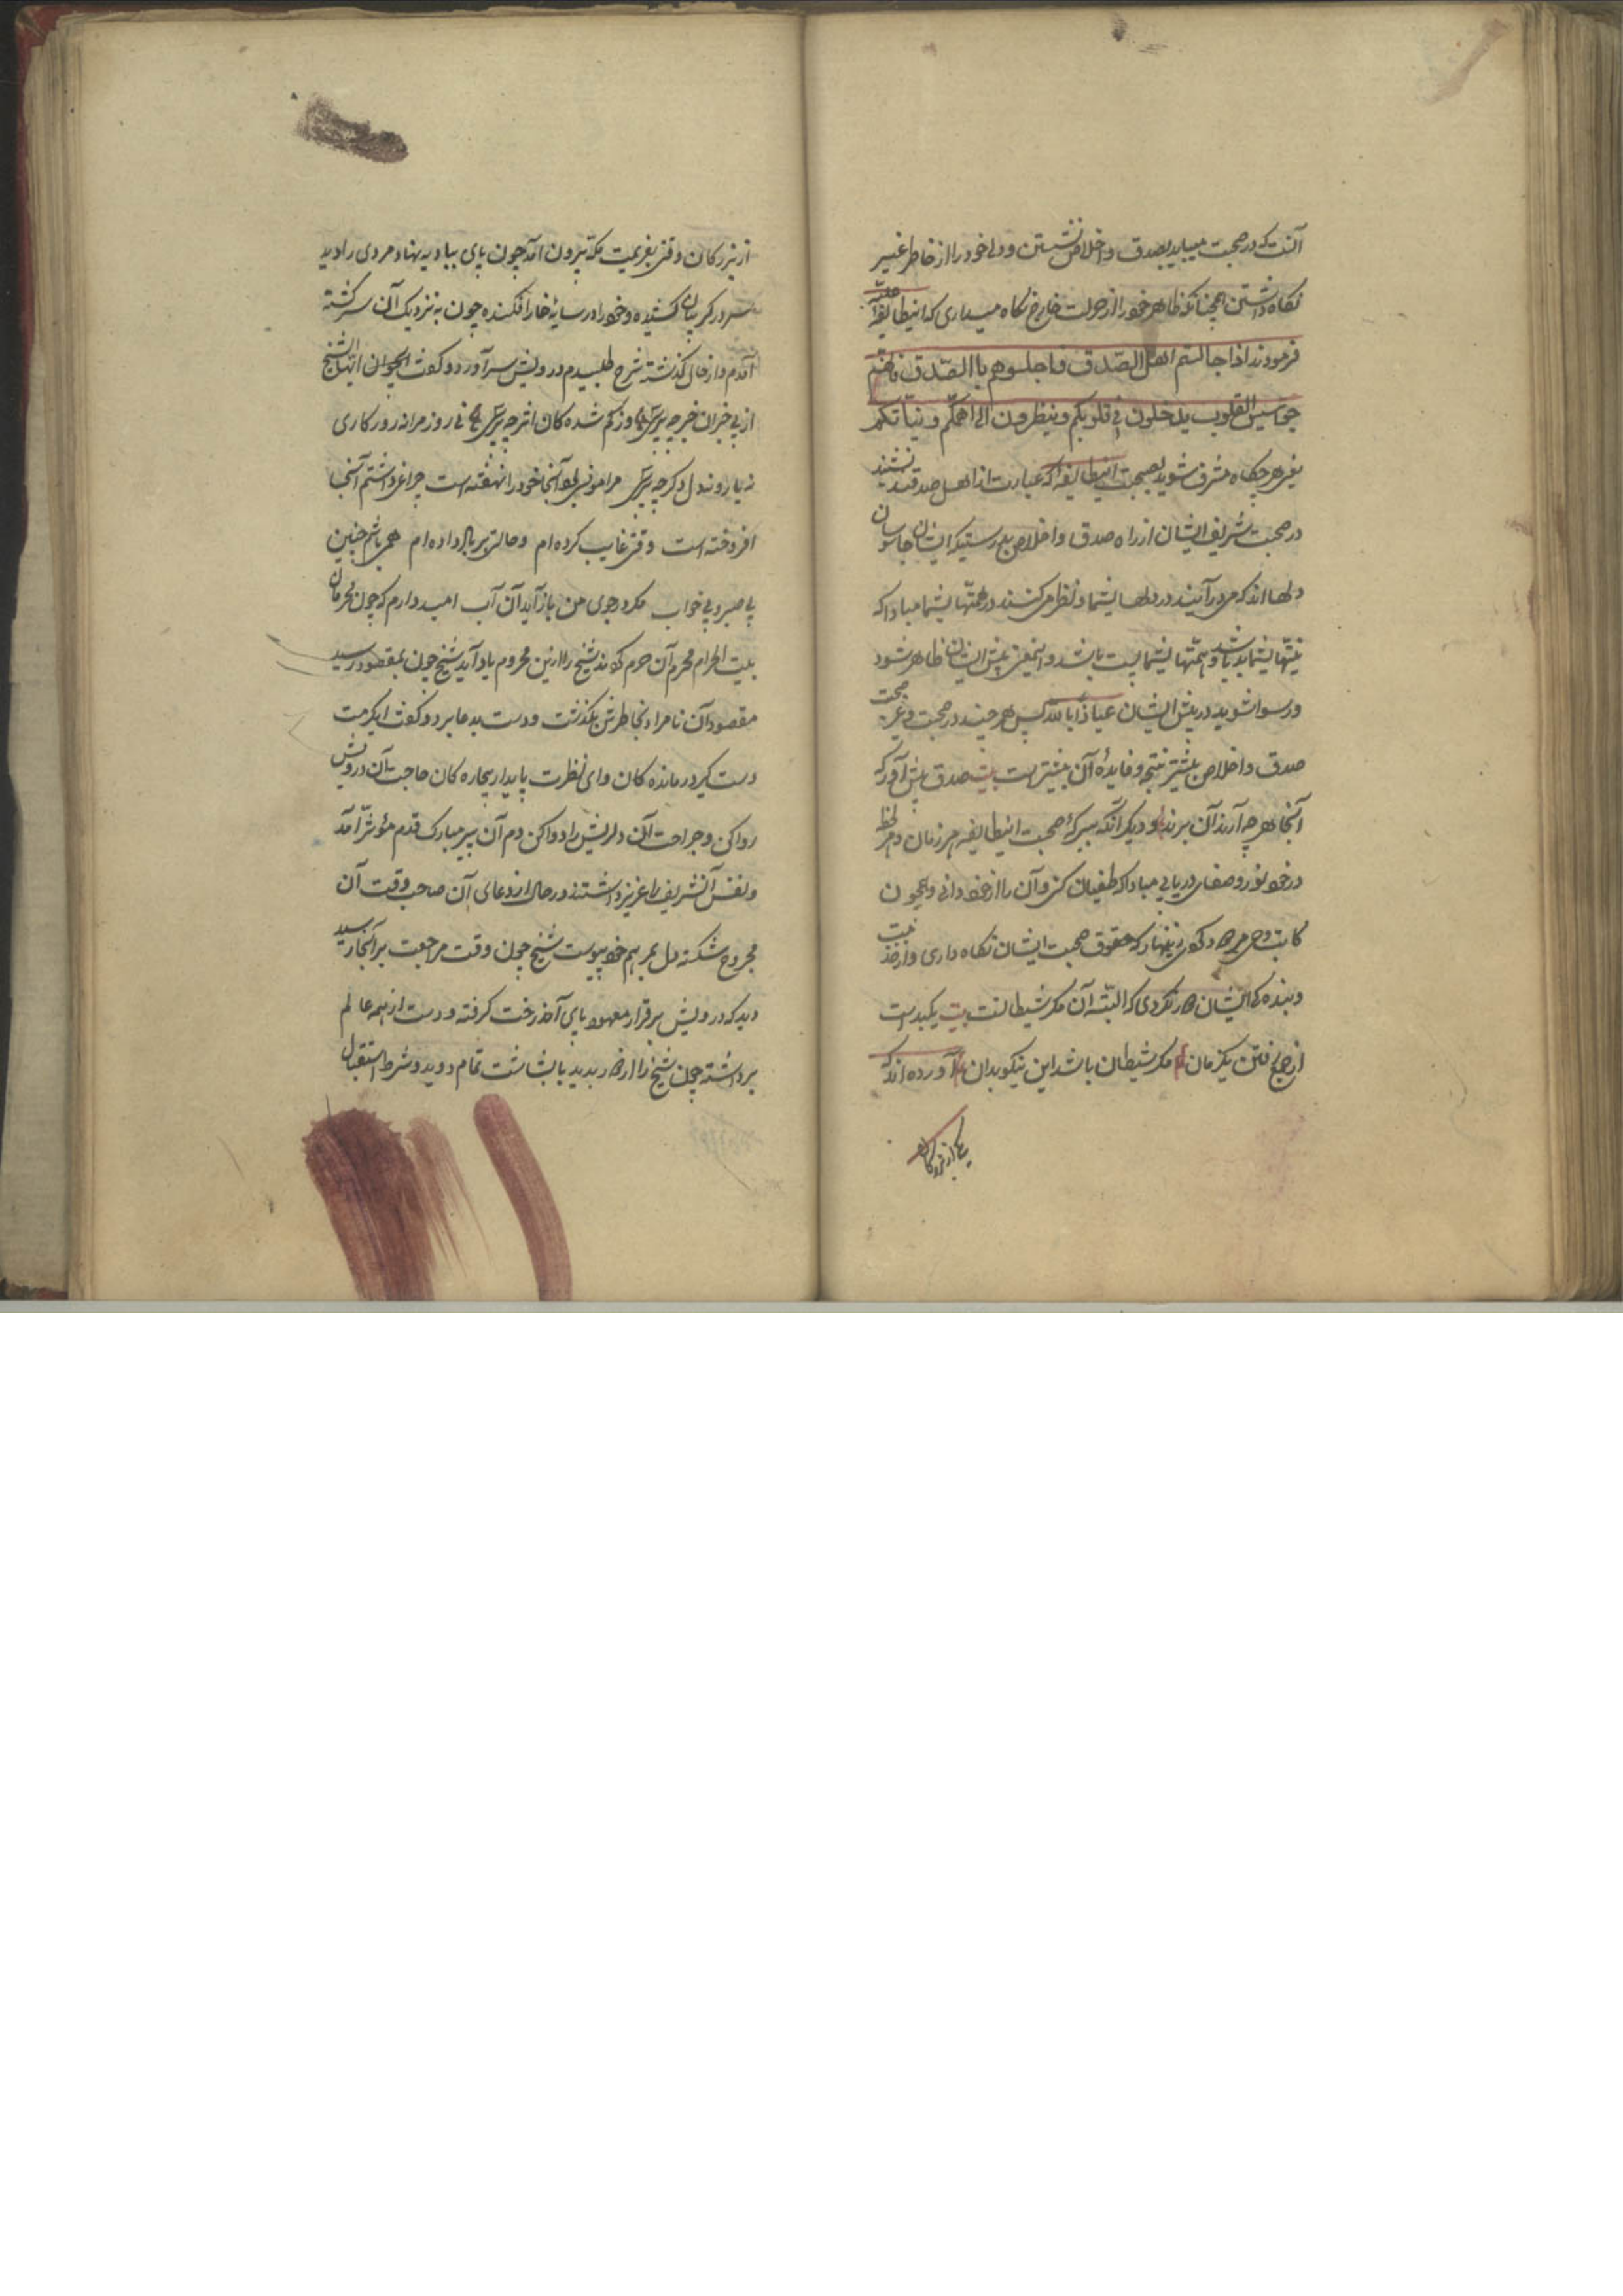 آنست که در صحبت میباید بصدق و اخلاص نشستن و دل خود را از خاطر غیر
نکاه داشتن همچنانکه ظاهر خود را از حرکت خارج نکاه میداری که اینطایفه علیه
فرمودند اذا جالستم اهل الصّدق فاجلسوهم باالصّدق فانّهم
جواسیس القلوب یدخلون فی قلوبکم و ینظرون الی اهمّکم و نیّاتکم
یعنی هر چکاه مشرف شوید بصحبت اینطایفه که عبارت از اهل صدقند بنشینید
در صحبت شریف ایشان از راه صدق و اخلاص بدرستیکه ایشان جاسوسان
دلها اند که می درآیند در دلهاء شما و نظر می کنند در همّتهاء شما مبادا که
نیتهاء شما بد باشد و همّتهاء شما پست باشد و اینمعنی پیش ایشان ظاهر شود
و رسوا شوید در پیش ایشان عیاذا بالله پس هر چند در صحبت وغیر صحبت
صدق و اخلاص بیشتر نتیجه و فایدهٔ آن بیشتر است بیت صدق پیش آور که
آنجا هر چه آرند آن برند و دیکر آنکه ببرکهٔ صحبت اینطایفه هر زمان و هر لحظه
در خود نور و صفای دریابی مبادا که طغیان کنی و آن را از خود دانی و همچون
کاتب وحی مردود کردی زینهار که حقوق صحبت ایشان نکاه داری و از خدمت
و بنده کی ایشان دور نکردی که البته آن مکر شیطانست بیت یکبدست
از جمع رفتن یکزمان مکر شیطان باشد این نیکو بدان آورده اند که
یکی از بزرکان
از بزرکان وقتی بعزیمت مکّه بیرون آمد چون پای ببادیه نهاد مردی را دید
سر در کریبان کشیده و خود را در سایهٔ خار افکنده چون به نزدیک آن سرکشته
آمدم و از حال کذشته شرح طلبیدم درویش سر آورد و کفت ایجوان ایها الشیخ
از بی خبران خبر چه پرسی وز کم شده کان اثر چه پرسی نی روز مرا نه روزکاری
نه یار و نه دل دکر چه پرسی مرا مونس بود آنجا خود را نهفته است چراغی داشتم آنجا
افروخته است وقتی غایب کرده ام و حالتی بر باد داده ام همی باشم چنین
بی صبر و بی خواب مکر در جوی من باز آید آن آب امید دارم که چون محرمان
بیت الحرام محرم آن حرم کردند شیخ را از این محروم یاد آید شیخ چون بمقصود رسید
مقصود آن نامراد بخاطرش بکذشت و دست بدعا برد و کفت ای کرمت
دست کیر درمانده کان و ای نظرت پایدار بیچاره کان حاجت آن درویش
روا کن و جراحت آن دلریش را دوا کن دم آن پیر مبارک قدم مؤثر آمد
و نفس آنشریف را عزیز داشتند در حال از دعای آن صاحب وقت آن
مجروح شکسته دل بمرهم خود پیوست شیخ چون وقت مراجعت بر آنجا رسید
دید که درویش بر قرار معهود پای آخذ رخت کرفته و دست از همه عالم
برداشته چون شیخ را از دور بدید با بشاشت تمام دوید و شرط استقبال